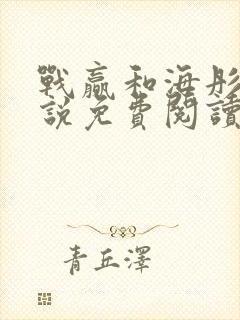 戰贏和海彤
說免費閱讀
青丘澤